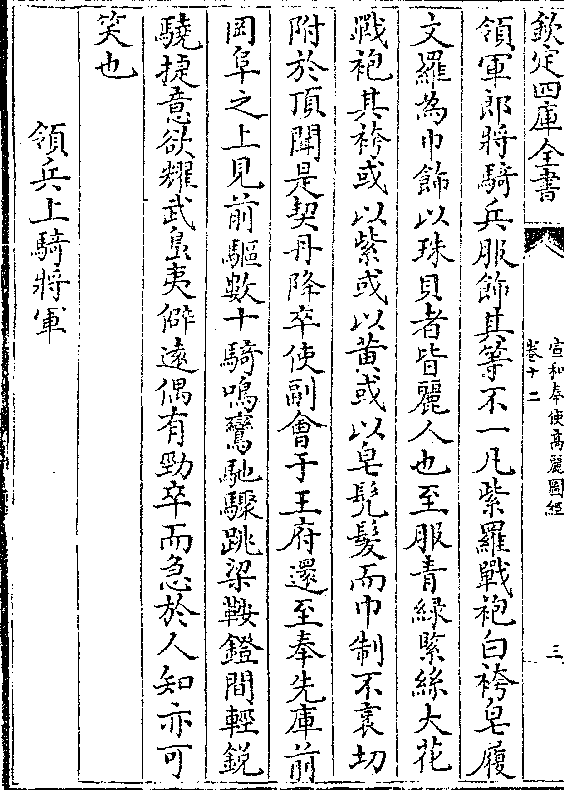 欽定四庫全書
宣和奉使高麗圖經
卷十二
三
領軍郎將騎兵服飾其等不一凡紫羅戰袍白袴皂履
文羅為巾飾以珠貝者皆麗人也至服青綠緊絲大花
戰袍其袴或以紫或以黄或以皂髠髮而巾制不袤切
附於頂聞是契丹降卒使副會于王府還至奉先庫前
岡阜之上見前驅數十騎鳴鸞馳驟跳梁鞍鐙間輕鋭
驍捷意欲耀武島夷僻逺偶有勁卒而急於人知亦可
笑也
領兵上騎將軍